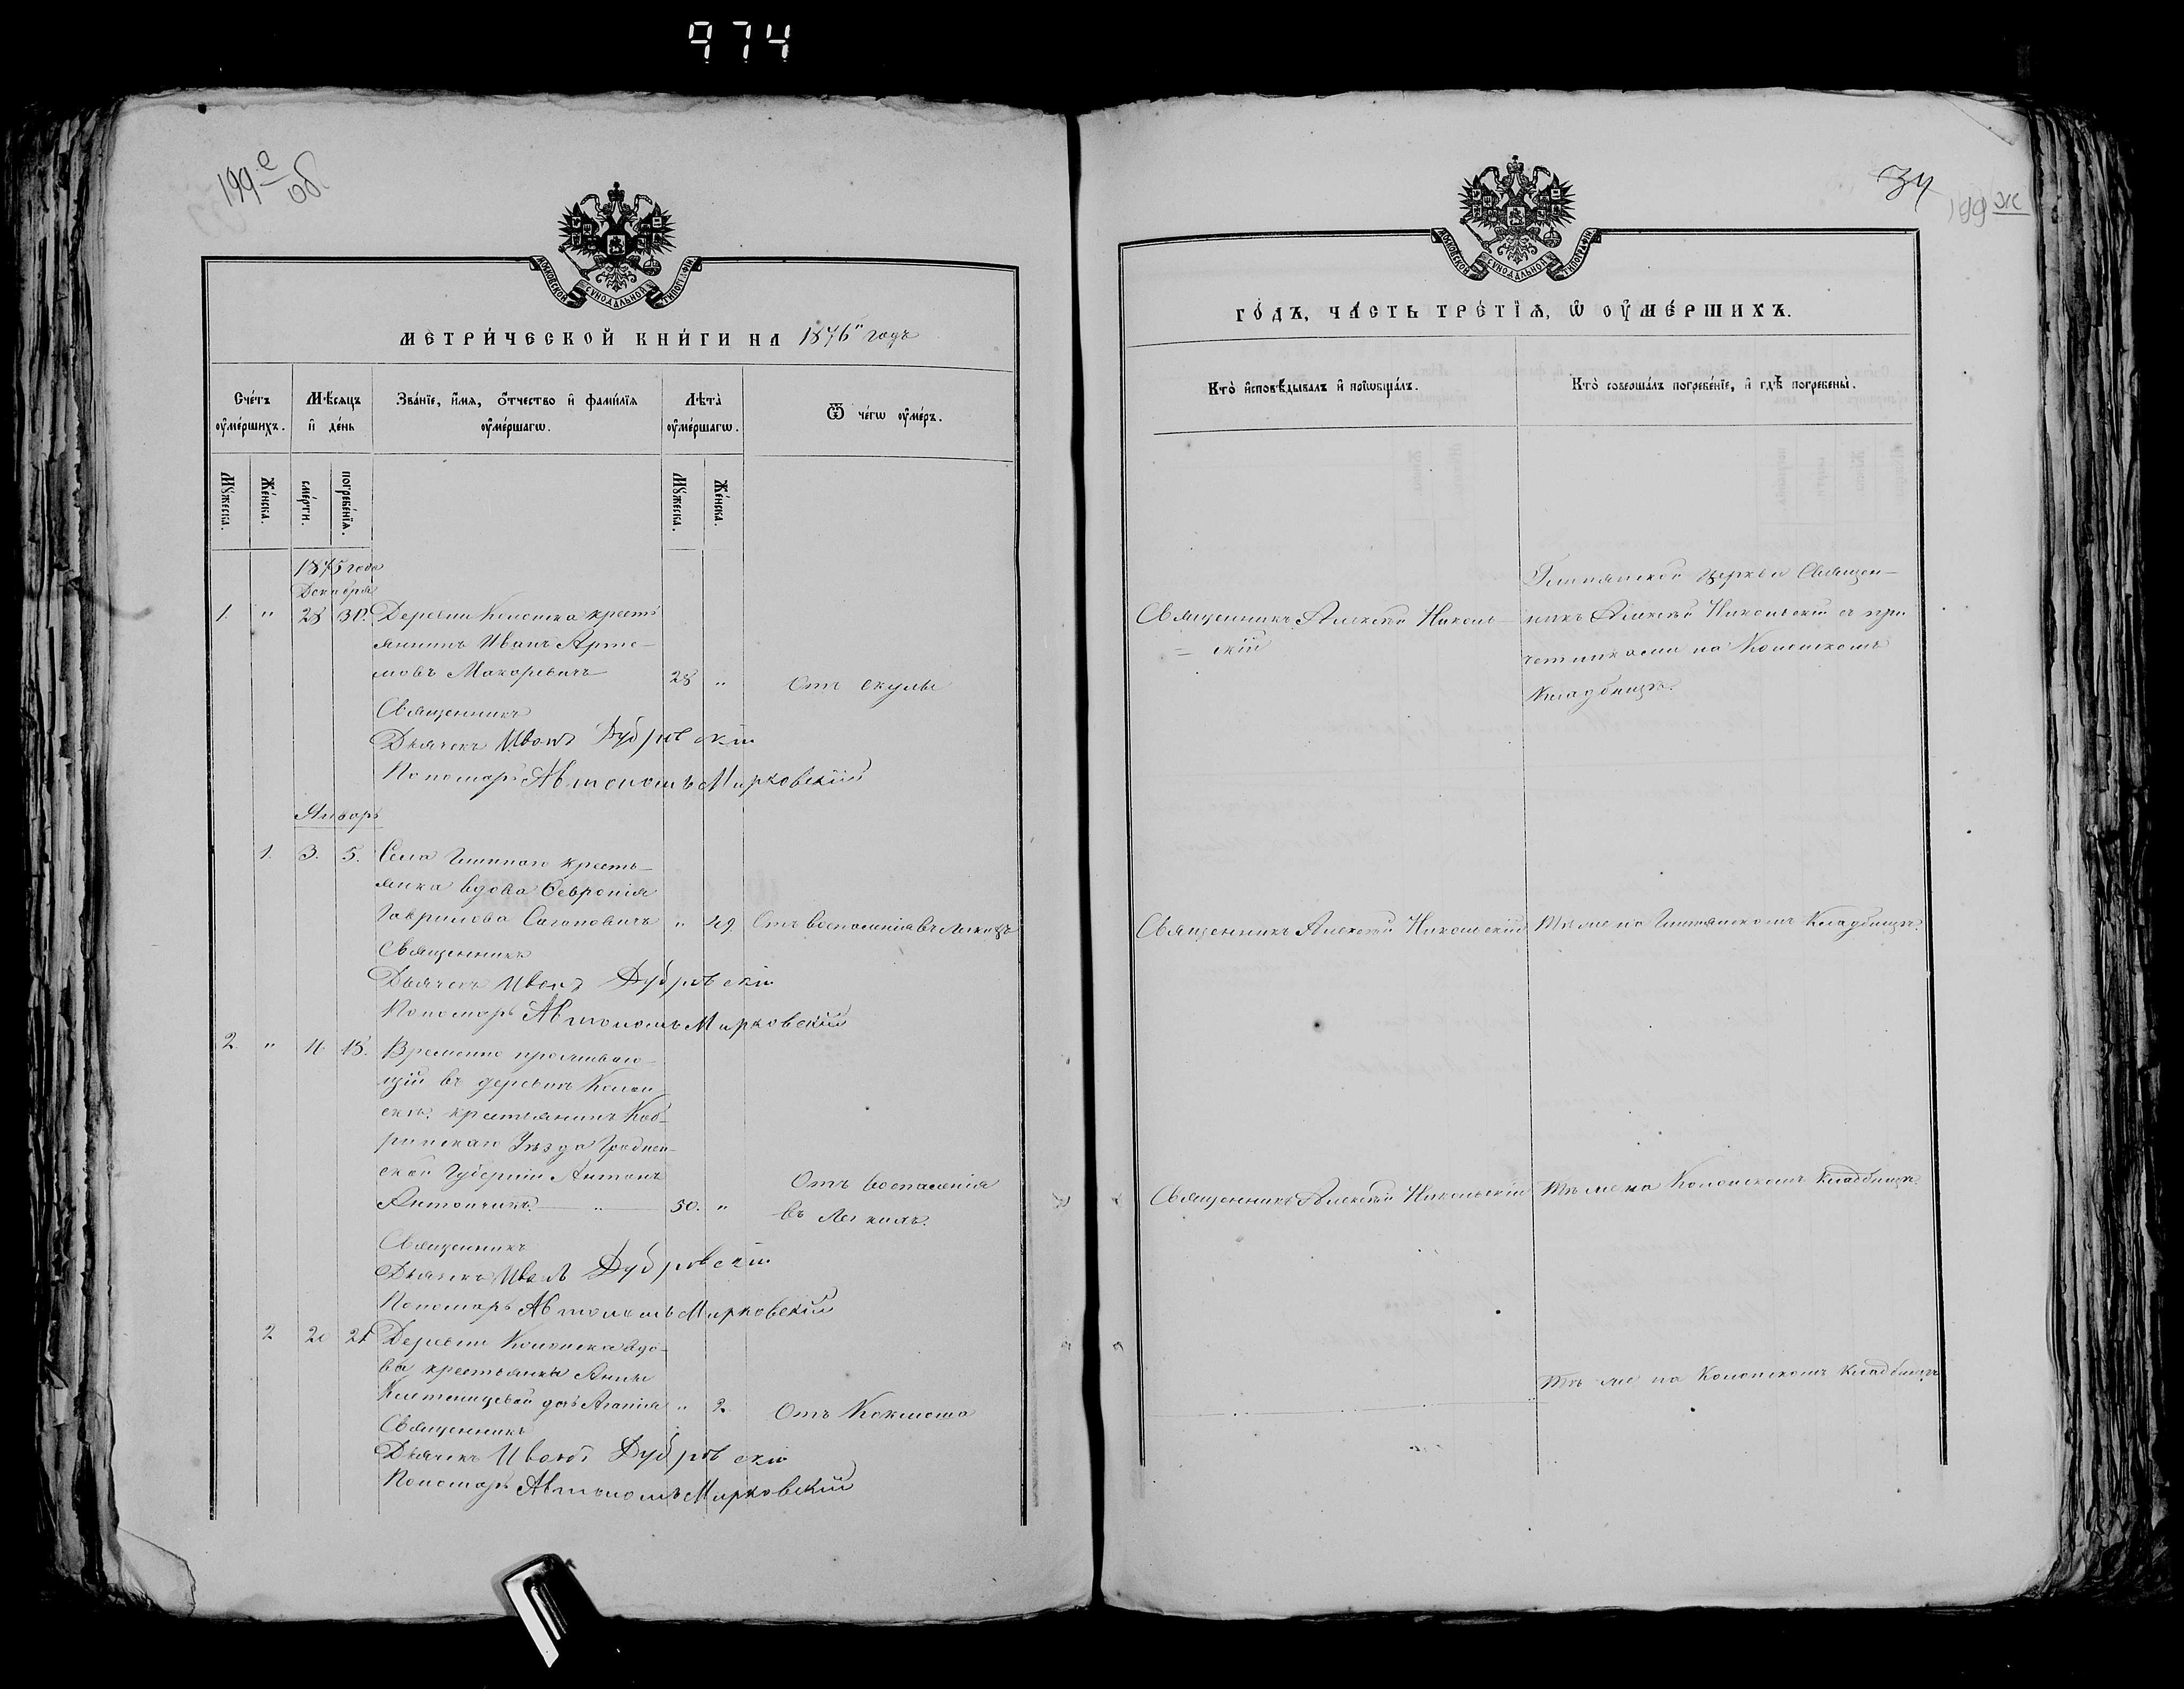 974
199 е
об.
МОСКОВСКОЙ СУНОДАЛЬНОЙ ТИПОГРАФІИ
МЕТРИ́ЧЕСКОЙ КНИ́ГИ НА 1876й годъ
Сче́тъ ᲂу҆ме́ршихъ.
Мѣ́сяцъ и҆ де́нь
Зва́нїе, и҆́мя, ѻ҆́тчество и҆ фами́лїя ᲂу҆ме́ршагѡ.
Лѣ́та ᲂу҆ме́ршагѡ.
Ѿ чегѡ̀ ᲂу҆́меръ.
Мꙋ́жеска.
Же́нска.
сме́рти.
погребе́нїя.
Мꙋ́жеска.
Же́нска.
1875 года
Декабря
1. " 28 30. Деревни Колонска кресть
янинъ Иванъ Арте-
мовъ Макоревичъ 28 " Отъ скулы
Священникъ
Дьячекъ Иванъ Дубровскій
Пономарь Автономъ Мирковскій
Январь
1. 3. 5. Села кресть-
янка вдова Февронія
Гаврилова Сагановичъ " 49 Отъ воспаленія въ легкихъ
Священникъ
Дьячекъ Иванъ Дубровскій
Пономарь Автономъ Мирковскій
2 " 15. Временно проживаю-
щій въ деревнѣ Колон
скѣ. крестьянинъ Коб-
ринскаго Уѣзда Гроднен-
ской Губерніи Антонъ
Антончикъ. " 50. " Отъ воспаленія
въ легкихъ.
Священникъ
Дьячекъ Иванъ Дубровскій
Пономарь Автономъ Мирковскій
2 21 Деревни Колонска вдо-
вы крестьянки Анны
дочь Агапія " 2. Отъ Коклюша
Священникъ
Дьячекъ Иванъ Дубровскій
Пономарь Автономъ Мирковскій
34
199 ж
МОСКОВСКОЙ СУНОДАЛЬНОЙ ТИПОГРАФІИ
ГО́ДЪ, ЧА́СТЬ ТРЕ́ТЇЯ, Ѡ҆ ОУ҆МЕ́РШИХЪ.
Кто̀ и҆сповѣ́дывалъ и҆ прїѡбща́лъ.
Кто̀ соверша́лъ погребе́нїе, и҆ гдѣ̀ погребены̀.
церкви Священ-
Священникъ Алексѣй Николь-
скій
никъ Алексѣй Никольскій съ при
четниками на Колонскомъ
Кладбищѣ.
Священникъ Алексѣй Никольскій Тѣ же на Кладбищѣ.
Священникъ Алексѣй Никольскій Тѣ же на Колонскомъ Кладбищѣ
Тѣ же на Колонскомъ Кладбищѣ